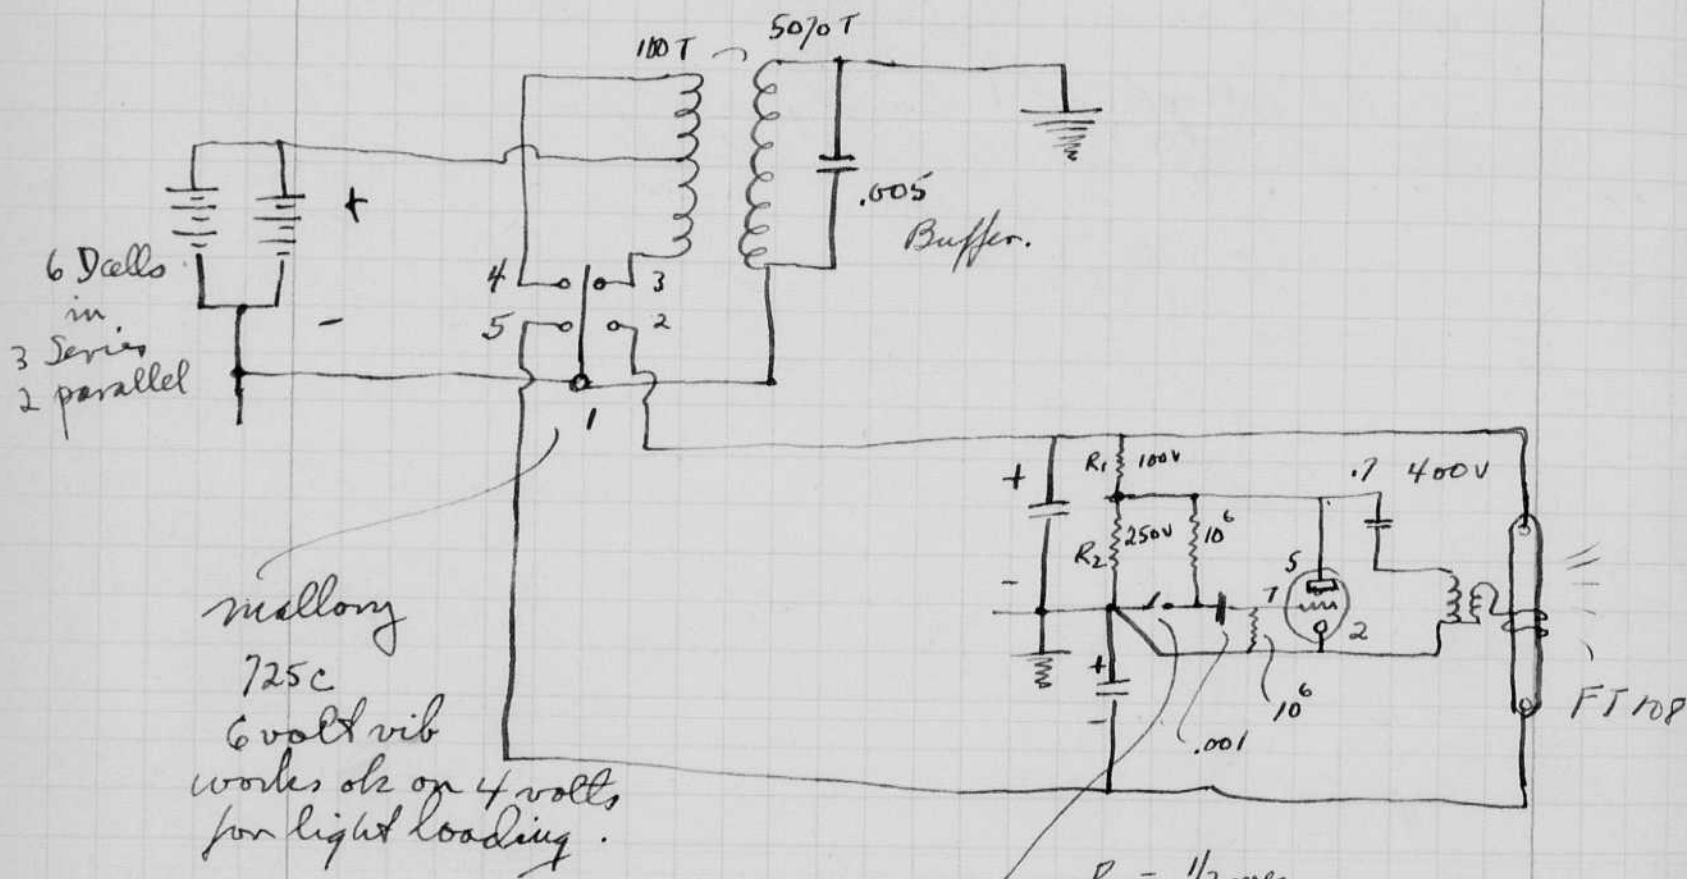 100T
5070T
.005
Buffer.
+
6 Dcells
in
3 Series
2 parallel
-
4
3
5
2
1
mallory
725c
6 volt vib
works ok on 4 volts
for light loading.
+
R1
100V
.7 400V
R2
250V
10^6
5
7
2
-
+
-
10^6
.001
FT 108
= 1/2